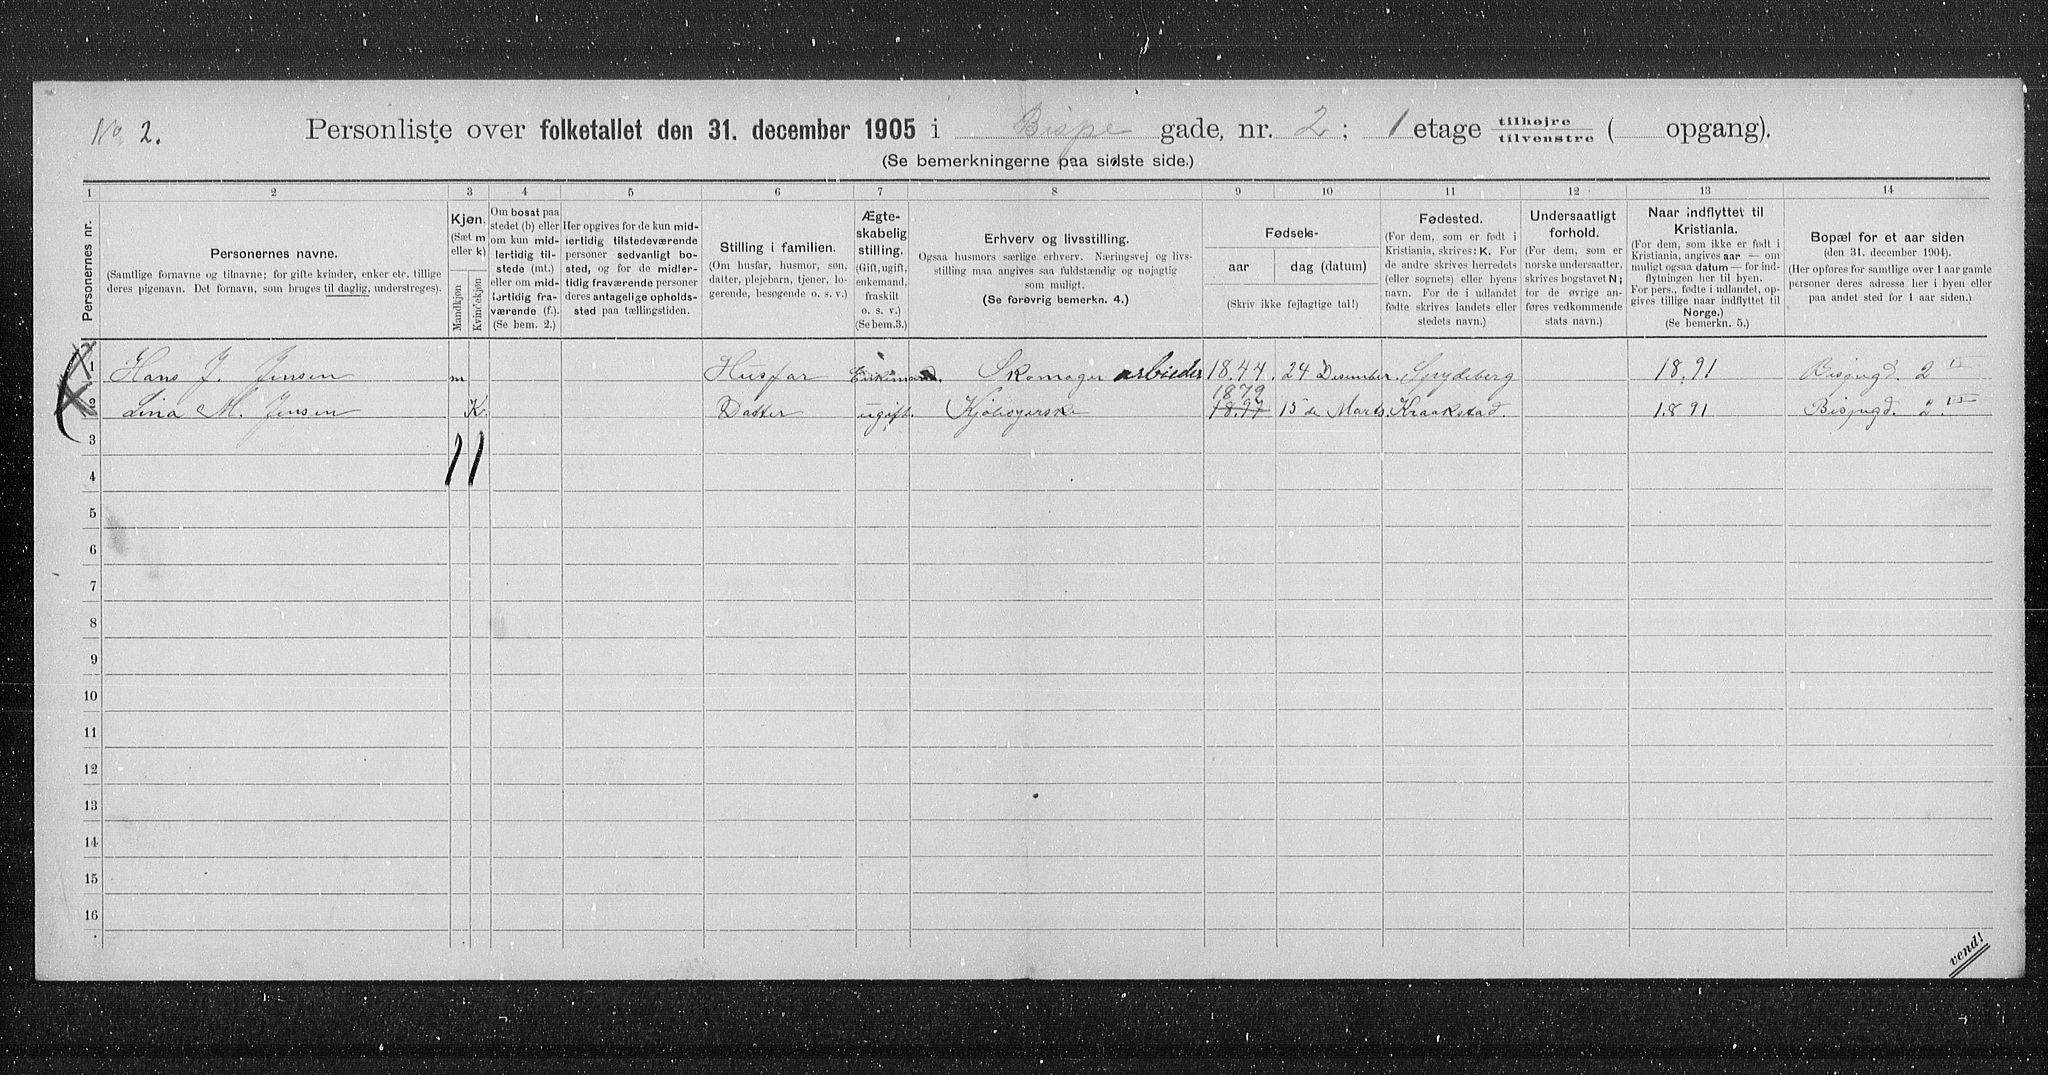 No. 2.
Personliste over folketallet den 31. december 1905 i Bispe gade, nr. 2; 1 etage tilhøjre tilvenstre ( opgang).
(Se bemerkningerne paa sidste side.)
1 2 3 4 5 6 7 8 9 10 11 12 13 14
Personernes nr.
Personernes navne.
(Samtlige fornavne og tilnavne; for gifte kvinder, enker etc. tillige
deres pigenavn. Det fornavn, som bruges til daglig, understreges).
Kjøn.
(Sæt m
eller k)
Mandkjøn
Kvindekjøn
Om bosat paa
stedet (b) eller
om kun mid-
lertidig til-
stede (mt.)
eller om mid-
lertidig fra-
værende (f.).
(Se bem. 2.)
Her opgives for de kun mid-
lertidig tilstedeværende
personer sedvanlig bo-
sted, og for de midler-
tidig fraværende personer
deres antagelige opholds-
sted paa tællingstiden.
Stilling i familien.
(Om husfar, husmor, søn,
datter, plejebarn, tjener, lo-
gerende, besøgende o. s. v.)
Ægte-
skabelig
stilling.
(Gift, ugift,
enkemand,
fraskilt
o. s. v.)
(Se bem. 3.)
Erhverv og livsstilling.
Ogsaa husmors særlige erhverv. Næringsvej og livs-
stilling maa angives saa fuldstændig og nøjagtig
som muligt.
(Se forøvrig bemerkn. 4.)
Fødsels-
aar dag (datum)
(Skriv ikke fejlagtige tal!)
Fødested.
(For dem, som er født i
Kristiania, skrives: K. For
de andre skrives herredets
(eller sognets) eller byens
navn. For de i udlandet
fødte skrives landets eller
stedets navn.)
Undersaatligt
forhold.
(For dem, som er
norske undersaatter,
skrives bogstavet N;
for de øvrige an-
føres vedkommende
stats navn.)
Naar indflyttet til
Kristiania.
(For dem, som ikke er født i
Kristiania, angives aar — om
muligt ogsaa datum — for ind-
flytningen her til byen.
For pers., fødte i udlandet, op-
gives tillige naar indflyttet til
Norge.)
(Se bemerkn. 5.)
Bopæl for et aar siden
(den 31. december 1904).
(Her opføres for samtlige over 1 aar gamle
personer deres adresse her i byen eller
paa andet sted for 1 aar siden.)
1 Hans J. Jensen m Husfar Enkemand. Skomager arbeider 1844. 24 Desember. Spydeberg 1891 Bispegd. 2 II
1879
2 Lina M. Jensen K. Datter ugift. Kjolsyerske 1897 15 de Marts. Kraakstad. 1891 Bispegd. 2 II
3
1 1
4
5
6
7
8
9
10
11
12
13
14
15
16
vend!